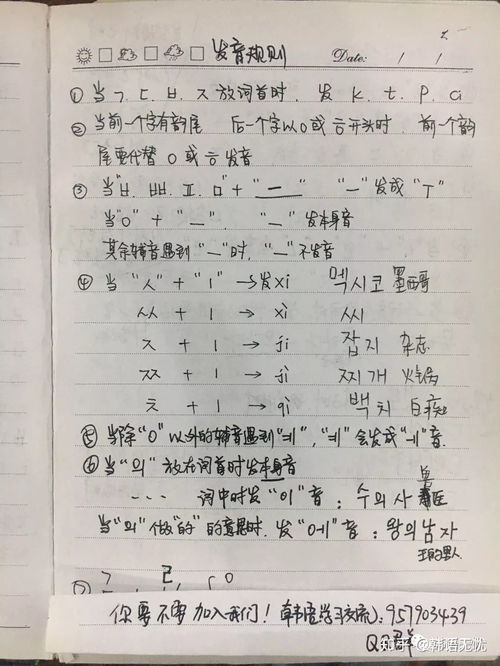 2.
发音规则 Date: / /
① 当ㄱ. ㄷ. ㅂ. ㅈ 放词首时. 发 k. t. p. ci
② 当前一个字有韵尾 后一个字以o或ㅎ开头时. 前一个韵
尾要代替 o 或ㅎ发音
③ 当"ㅂ. ㅃ. ㅍ. ㅁ" + "ㅡ" "ㅡ"发成"ㅜ"
当"o" + "ㅡ" "ㅡ"发本身音
其余辅音遇到"ㅡ"时. "ㅡ"不发音
④ 当 "ㅅ" + "ㅣ" →发xi 멕시코 墨西哥
ㅆ + ㅣ → xì 씨
ㅈ + ㅣ → ji 잡지 杂志
ㅉ + ㅣ → jì 찌개 火锅
ㅊ + ㅣ → qì 백치 白痴
⑤ 当除"o"以外的辅音遇到"ㅖ", "ㅖ"会发成"ㅔ"音.
⑥ 当"의"放在词首时发本身音
... 词中时发"이"音: 수의사 兽医
当"의"做"的"的意思时. 发"에"音: 왕의남자
王的男人
你要不要加入我们! 韩语学习交流: 957703439
QQ群
知乎 @韩语无忧